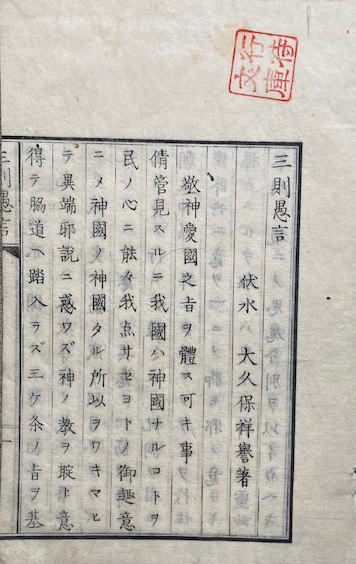 行待文庫
三則愚言
伏水 大久保祥譽著
敬神愛國之旨ヲ體ス可キ事
倩管見スルニ我國ハ神國ナルコトヲ
民ノ心ニ能々我点サセヨトノ御趣意
ニメ神國ノ神國タル所以ヲワキマヒ
テ異端邪説ニ惑ワズ神ノ教ヲ聢ト意
得テ脇道ヘ踏入ラズ三ケ条ノ旨ヲ基
三則愚言